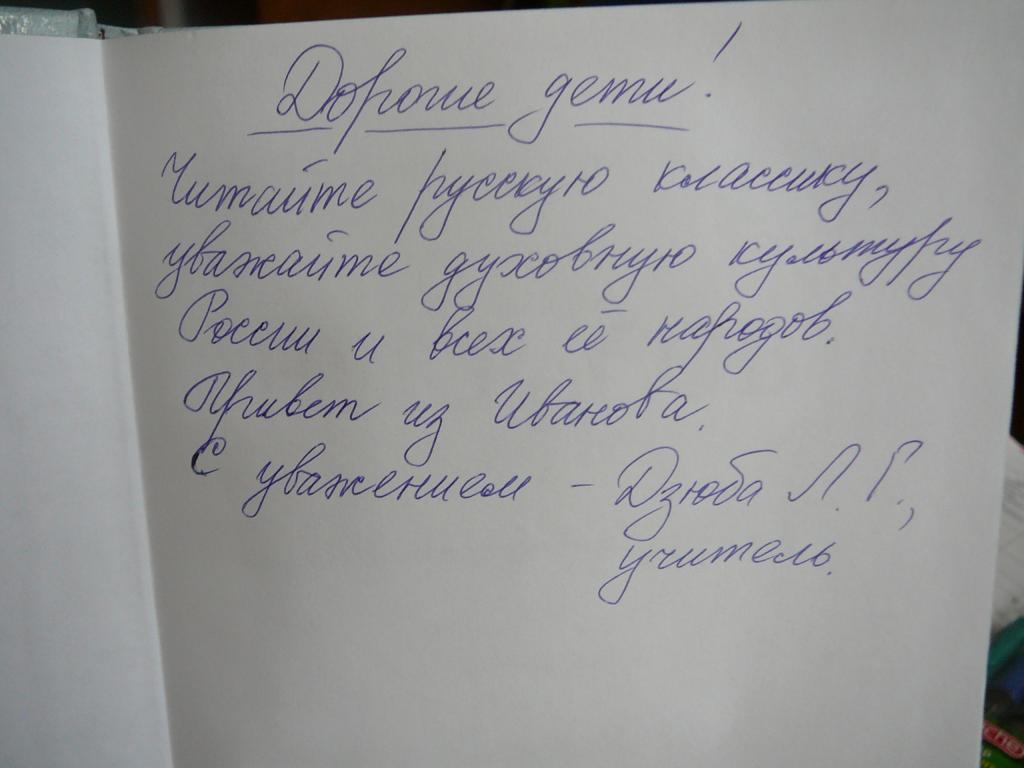 Дорогие дети!
Читайте русскую классику,
уважайте духовную культуру
России и всех её народов.
Привет из Иванова.
С уважением – Дзюба Л. Г.,
учитель.